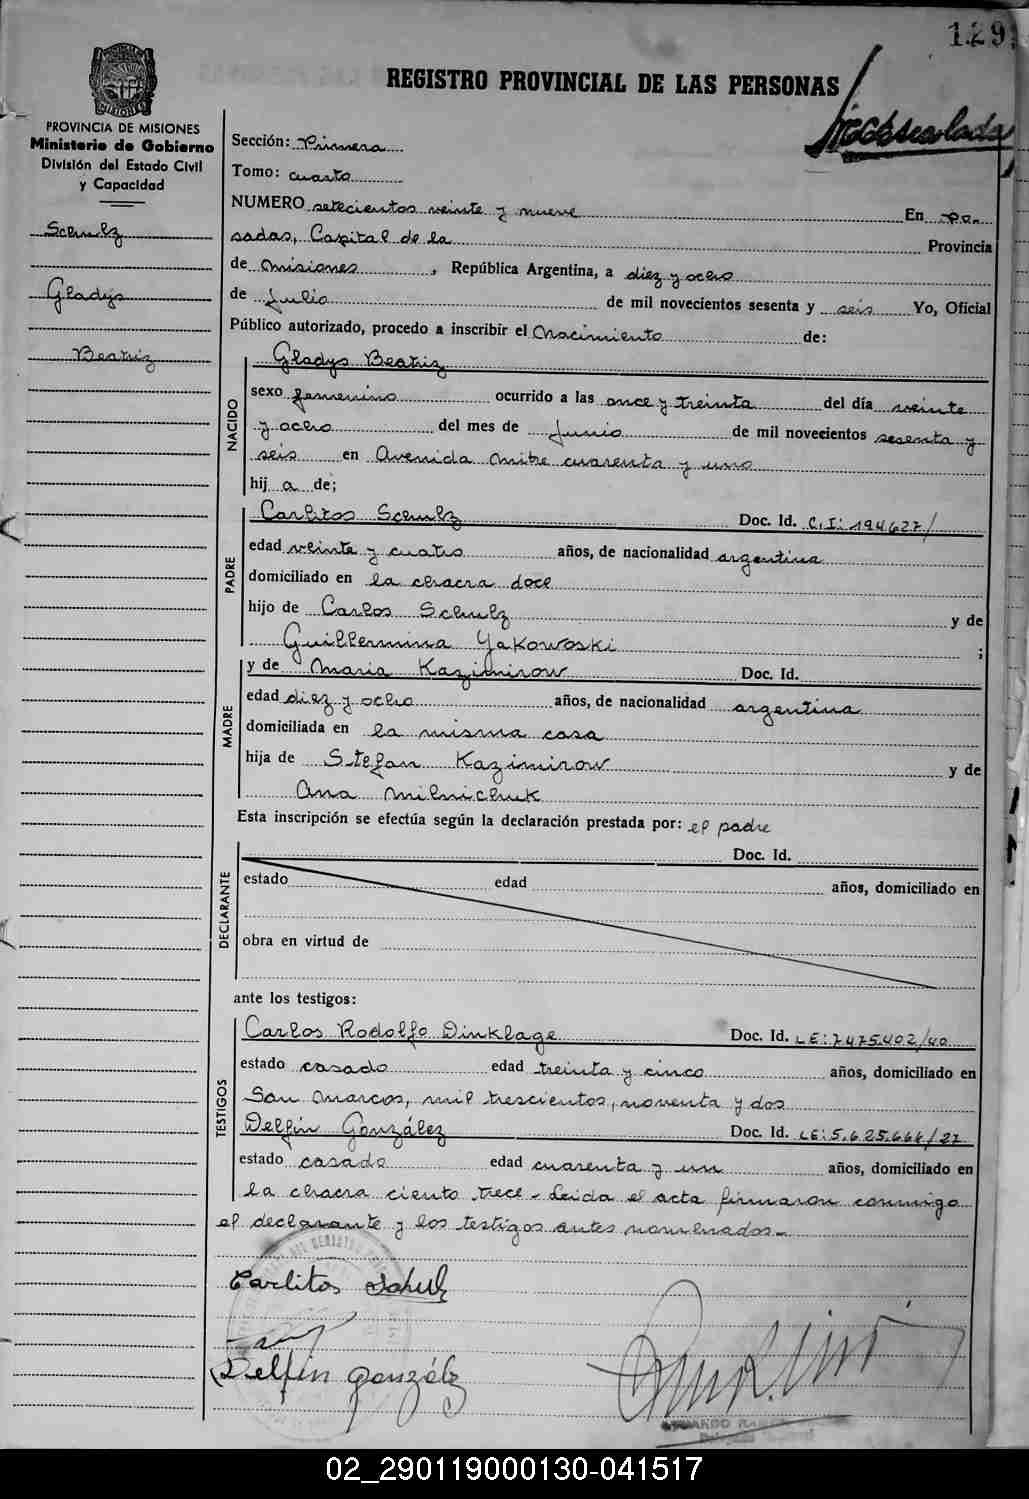 129
REGISTRO PROVINCIAL DE LAS PERSONAS
PROVINCIA DE MISIONES
Ministerio de Gobierno
División del Estado Civil
y Capacidad
Schulz
Gladys
Beatriz
Sección: Primera
Tomo: cuarto
NUMERO setecientos veinte y nueve En Po-
sadas, Capital de la Provincia
de Misiones, República Argentina, a diez y ocho
de Julio de mil novecientos sesenta y seis Yo, Oficial
Público autorizado, procedo a inscribir el Nacimiento de:
NACIDO
Gladys Beatriz
sexo femenino ocurrido a las once y treinta del día veinte
y ocho del mes de Junio de mil novecientos sesenta y
seis en Avenida Mitre cuarenta y uno
hij a de;
PADRE
Carlitos Schulz Doc. Id. C.I: 194.627/
edad veinte y cuatro años, de nacionalidad argentina
domiciliado en la chacra doce
hijo de Carlos Schulz y de
Guillermina Yakowoski ;
MADRE
y de Maria Kazimirow Doc. Id.
edad diez y ocho años, de nacionalidad argentina
domiciliada en la misma casa
hija de Stefan Kazimirow y de
Ana Milnichuk
Esta inscripción se efectúa según la declaración prestada por: el padre
DECLARANTE
Doc. Id.
estado edad años, domiciliado en
obra en virtud de
ante los testigos:
TESTIGOS
Carlos Rodolfo Dinklage Doc. Id. LE: 7475.402/40
estado casado edad treinta y cinco años, domiciliado en
San Marcos, mil trescientos, noventa y dos
Delfin González Doc. Id. LE: 5.625.666/27
estado casado edad cuarenta y un años, domiciliado en
la chacra ciento trece - Leida el acta firmaron conmigo
el declarante y los testigos antes nombrados.-
Carlitos Schulz
Delfin González
02_290119000130-041517